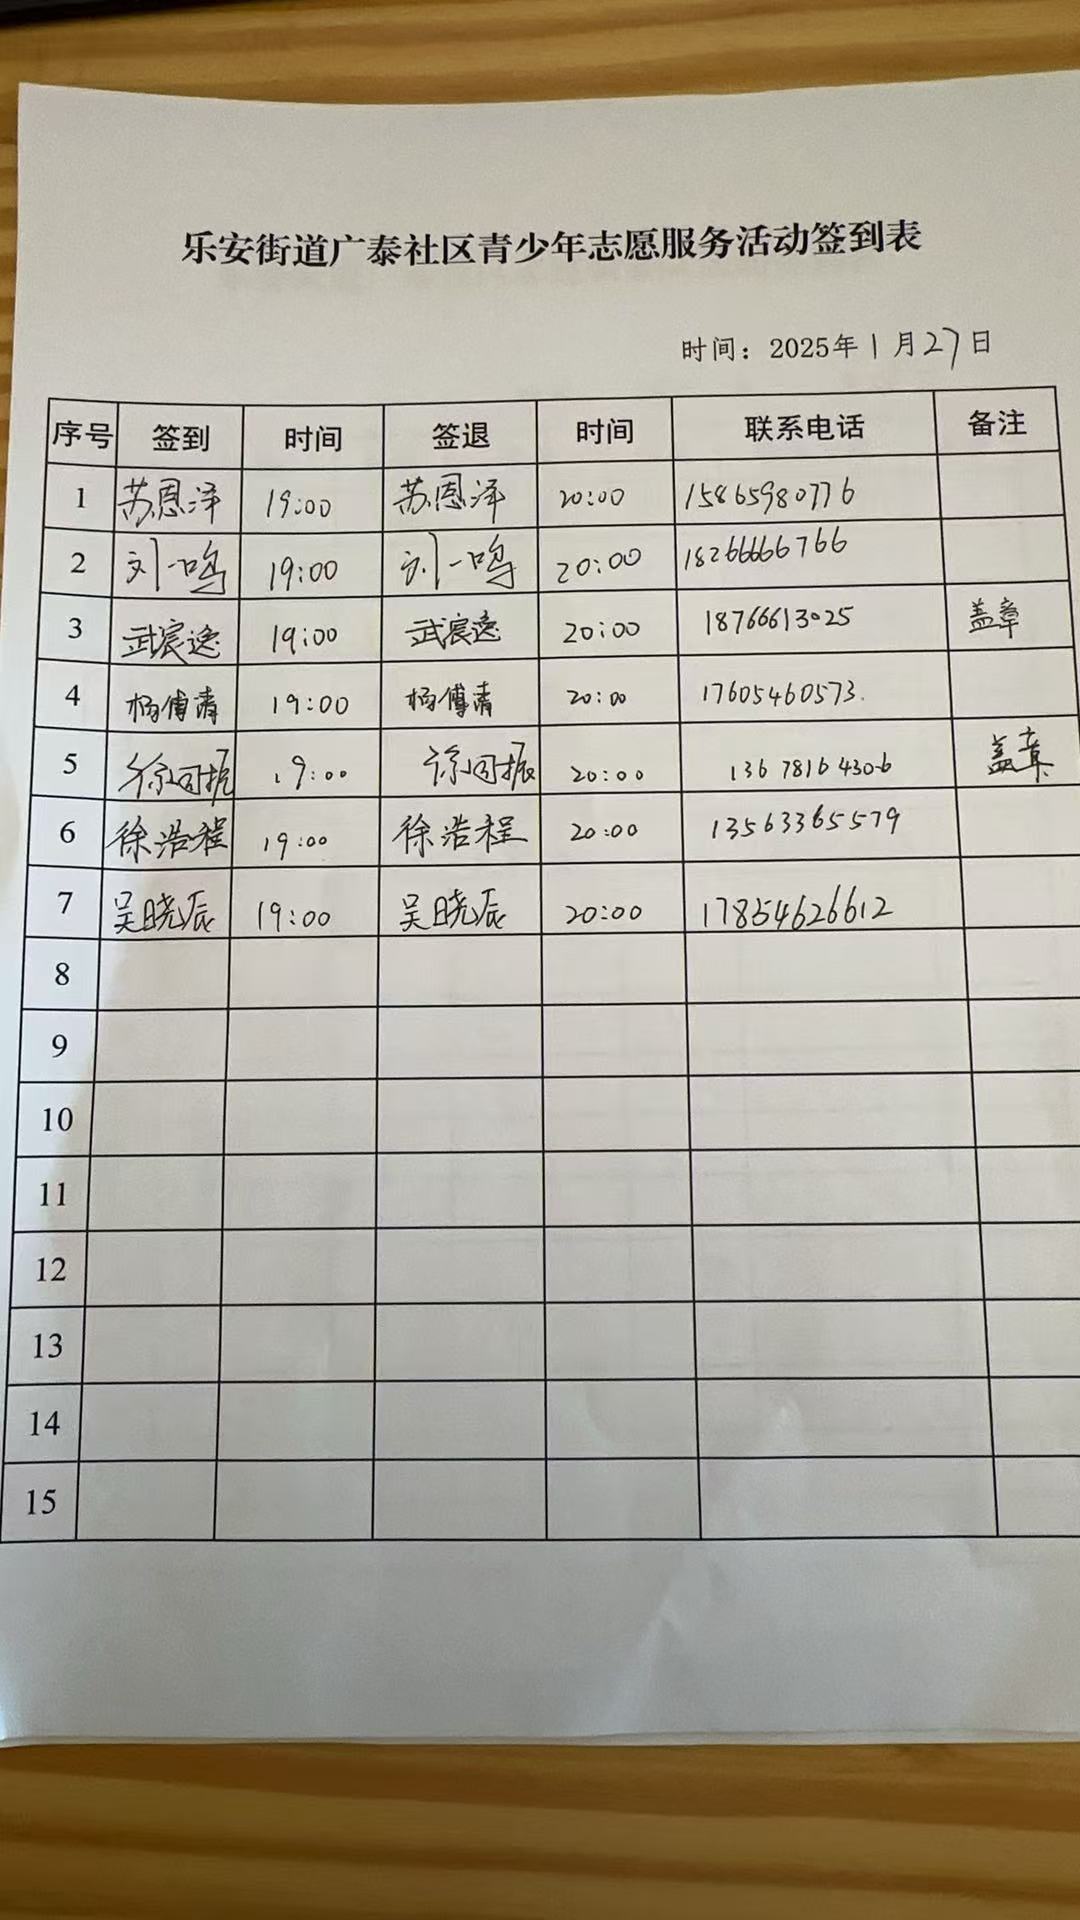 乐安街道广泰社区青少年志愿服务活动签到表
时间：2025年1月27日
序号 签到 时间 签退 时间 联系电话 备注
1 苏恩泽 19:00 苏恩泽 20:00 15865980776
2 刘一鸣 19:00 刘一鸣 20:00 18266666766
3 武宸逸 19:00 武宸逸 20:00 18766613025 盖章
4 杨傅清 19:00 杨傅清 20:00 17605460573.
5 徐 振 19:00 徐 振 20:00 13678164306 盖章
6 徐浩程 19:00 徐浩程 20:00 13563365579
7 吴晓辰 19:00 吴晓辰 20:00 17854626612
8
9
10
11
12
13
14
15